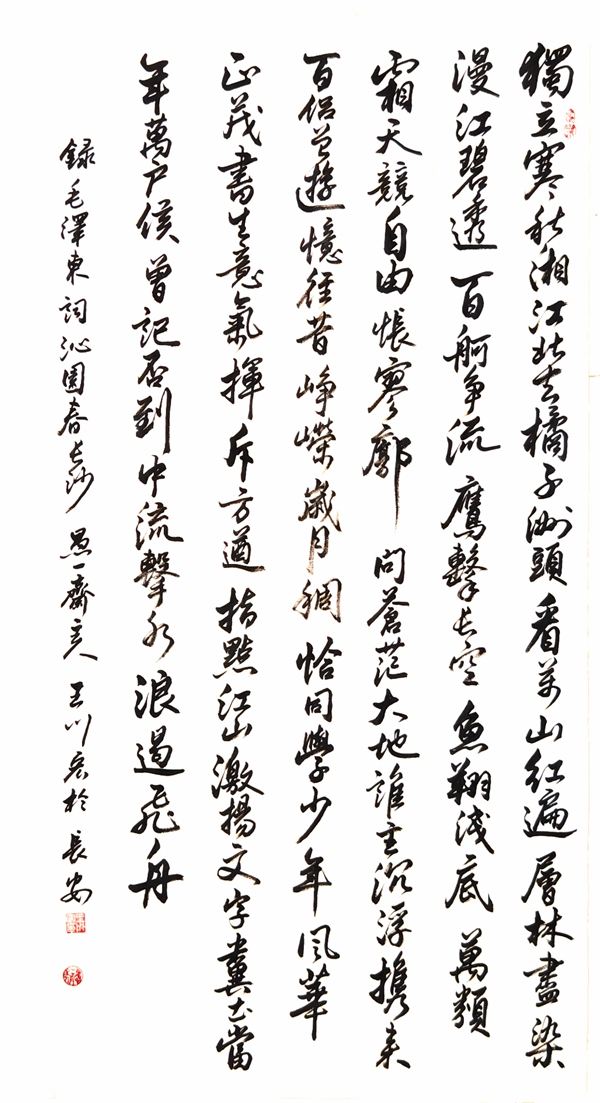 獨立寒秋湘江北去橘子洲頭看萬山紅遍層林盡染
漫江碧透百舸争流鷹擊長空魚翔淺底萬類
霜天競自由悵寥廓問蒼茫大地誰主沉浮携来
百侣曾遊憶往昔崢嶸歲月稠恰同學少年風華
正茂書生意氣揮斥方遒指點江山激揚文字糞土當
年萬户侯曾記否到中流擊水浪遏飛舟
録毛澤東詞沁園春長沙 愚一齋主人 王川宏於長安